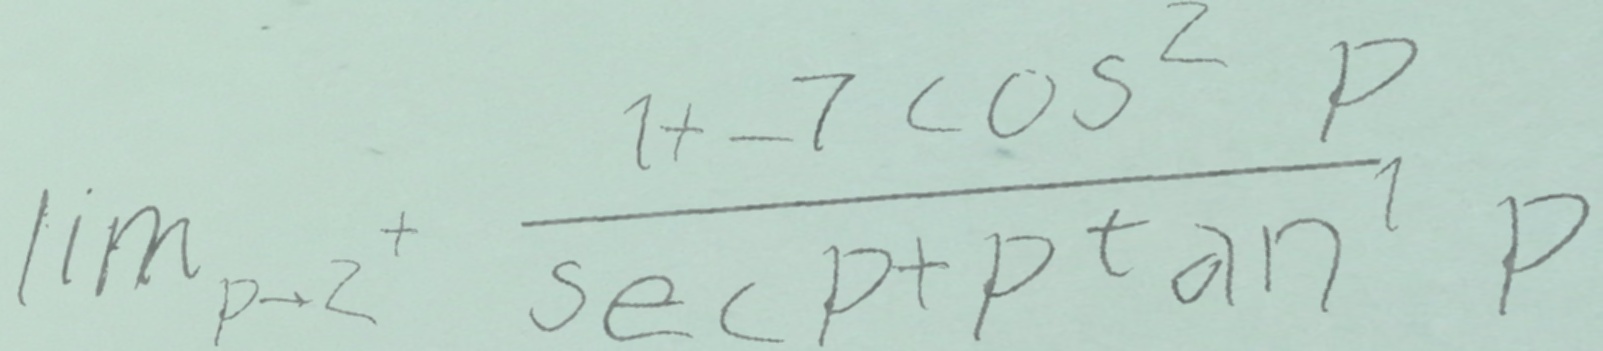 \lim_{p \to 2^+} \frac{1 + -7 \cos^2 p}{\sec p + p \tan^1 p}